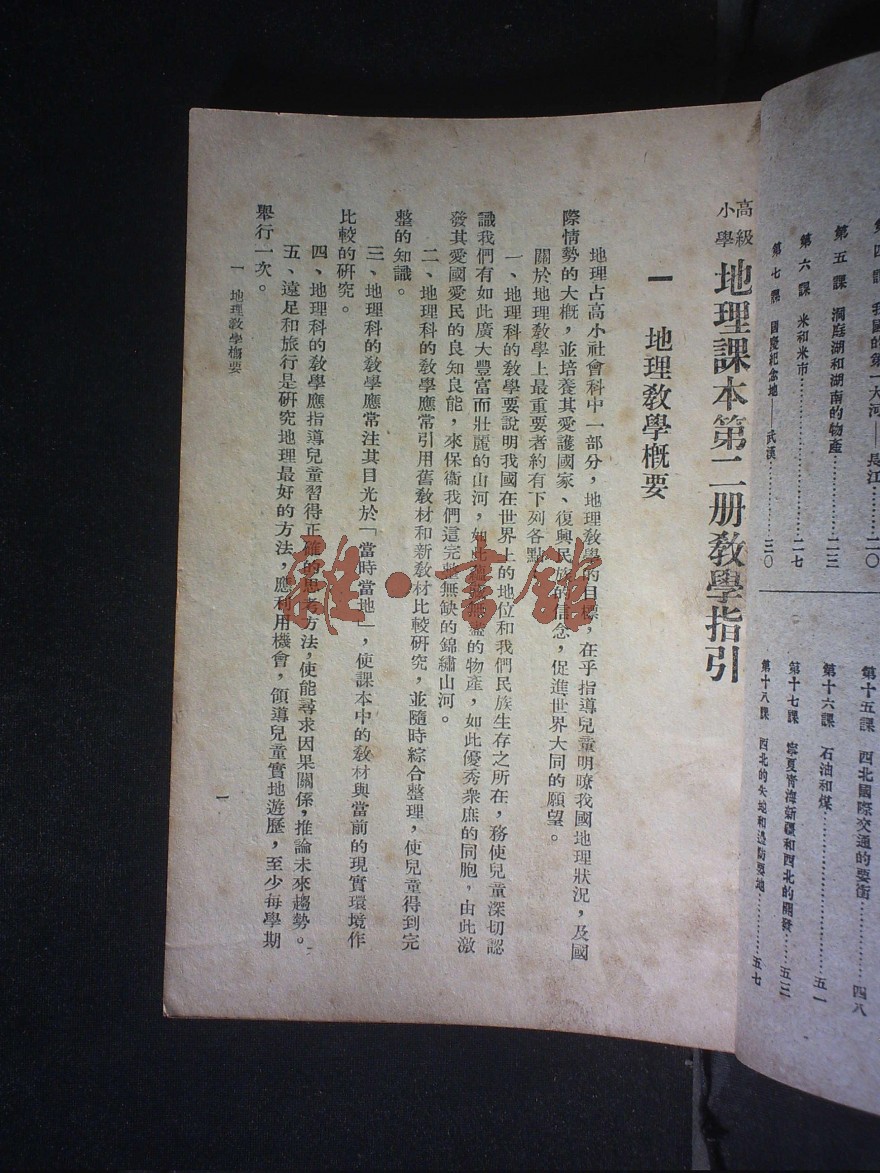 第五課　洞庭湖和湖南的物產…………二三
第六課　米和米市…………二七
第七課　國慶紀念地——武漢…………三〇
第十五課　西北國際交通的要衝…………四八
第十六課　石油和煤…………五一
第十七課　寧夏青海新疆和西北的開發…………五三
第十八課　西北的失地和邊防要地…………五七
高級小學　地理課本第二册教學指引
一　地理教學概要
地理占高小社會科中一部分，地理教學的目標，在乎指導兒童明瞭我國地理狀況，及國
際情勢的大概，並培養其愛護國家、復興民族的信念，促進世界大同的願望。
關於地理教學上最重要者約有下列各點
一、地理科的教學要說明我國在世界上的地位和我們民族生存之所在，務使兒童深切認
識我們有如此廣大豐富而壯麗的山河，如此的物產，如此優秀衆庶的同胞，由此激
發其愛國愛民的良知良能，來保衞我們這完整無缺的錦繡山河。
二、地理科的教學應常引用舊教材和新教材比較研究，並隨時綜合整理，使兒童得到完
整的知識。
三、地理科的教學應常注其目光於「當時當地」，使課本中的教材與當前的現實環境作
比較的研究。
四、地理科的教學應指導兒童習得正確的思考方法，使能尋求因果關係，推論未來趨勢。
五、遠足和旅行是研究地理最好的方法，應利用機會，領導兒童實地遊歷，至少每學期
舉行一次。
一　地理教學概要
一
雜·書館